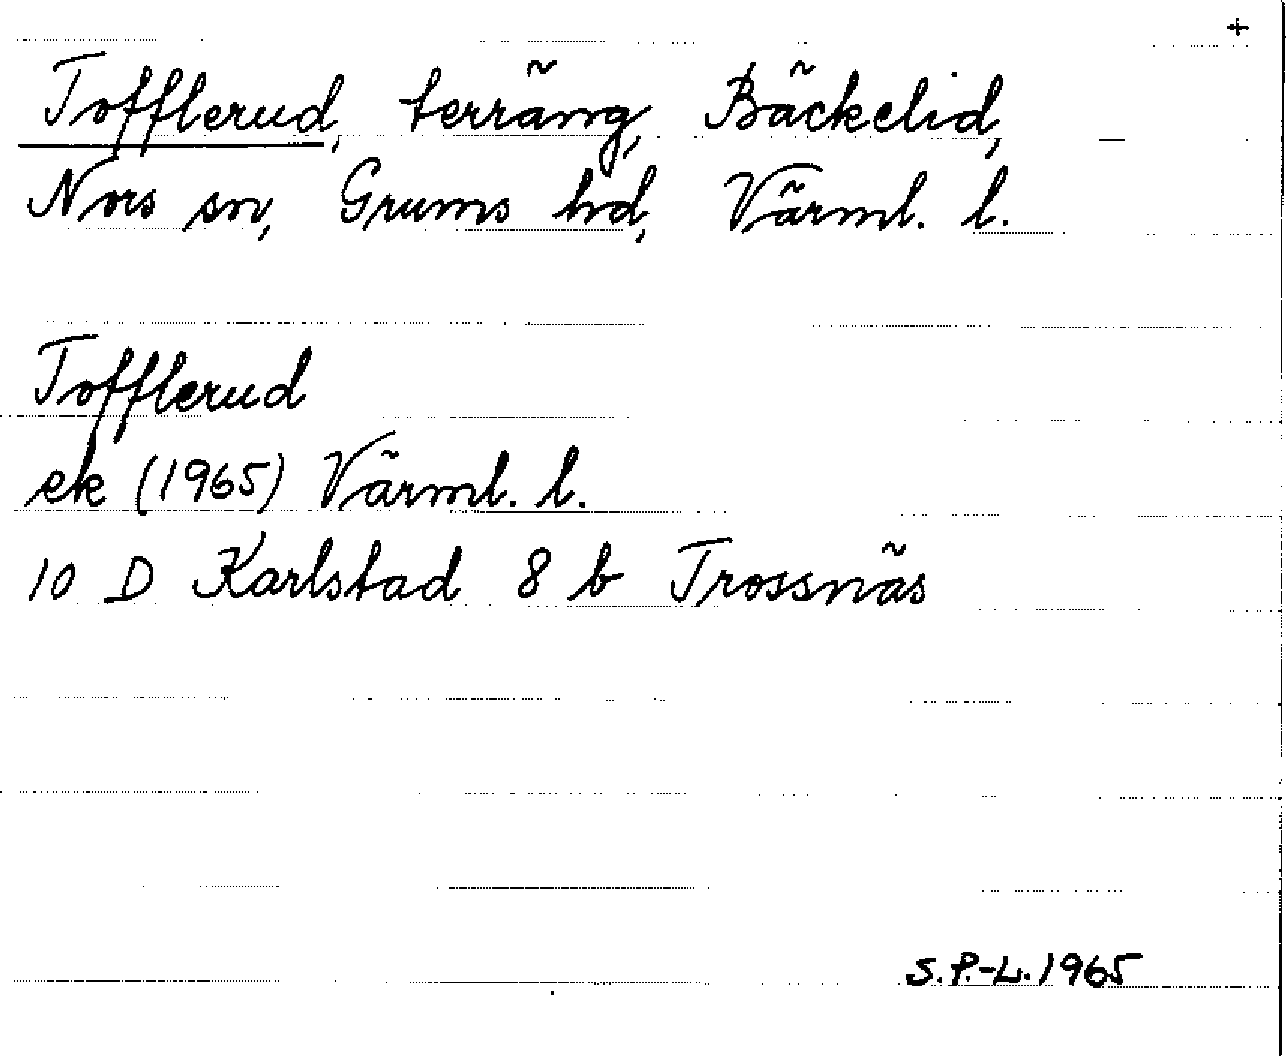 +
Tofflerud, terräng, Bäckelid,
Nors sn, Grums hd, Värml. l.
Tofflerud
ek (1965) Värml. l.
10 D Karlstad 8 b Trossnäs
S.P.-L. 1965